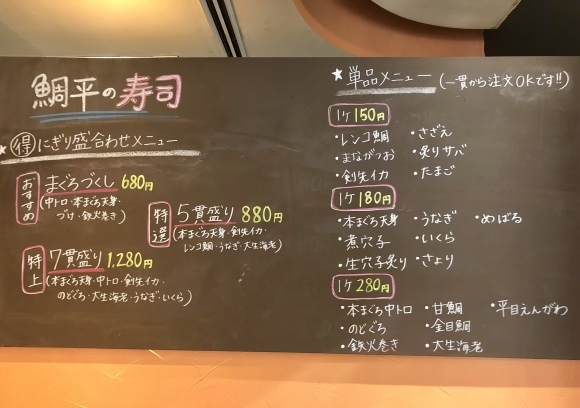 鯛平の寿司
★得にぎり盛合わせメニュー
おすすめ まぐろづくし 680円
(中トロ・本まぐろ天身・
づけ・鉄火巻き)
特選 5貫盛り 880円
(本まぐろ天身・剣先イカ・
レンコ鯛・うなぎ・大生海老)
特上 7貫盛り 1,280円
(本まぐろ天身・中トロ・剣先イカ・
のどぐろ・大生海老・うなぎ・いくら)
★単品メニュー(一貫から注文OKです!!)
1ケ150円
・レンコ鯛 ・さざえ
・まながつお ・炙りサバ
・剣先イカ ・たまご
1ケ180円
・本まぐろ天身 ・うなぎ ・めばる
・煮穴子 ・いくら
・生穴子炙り ・さより
1ケ280円
・本まぐろ中トロ ・甘鯛 ・平目えんがわ
・のどぐろ ・金目鯛
・鉄火巻き ・大生海老